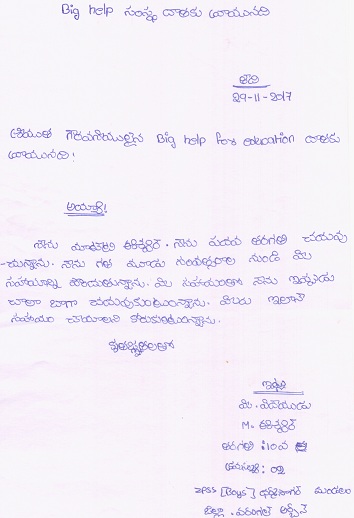 Big help సంస్థ దాతకు వ్రాయునది
తేది
29-11-2017
శ్రీయుత గౌరవనీయులైన Big help for education దాతకు
వ్రాయునది!
అయ్యా!
నేను మాచర్ల . నేను పదవ తరగతి చదువు
-చున్నాను. నేను గత మూడు సంవత్సరాల నుండి మీ
సహాయాన్ని పొందుతున్నాను. మీ సహాయంతో నేను ఇప్పుడు
చాలా బాగా చదువుకుంటున్నాను. మీరు ఇలానే
సహాయం చేయాలని కోరుకుంటున్నాను.
కృతజ్ఞతలతో
ఇట్లు
మీ. విధేయుడు
M.
తరగతి : 10వ
క్రమసంఖ్య : 02
ZPSS [Boys] మండలం
జిల్లా . వరంగల్ అర్బన్